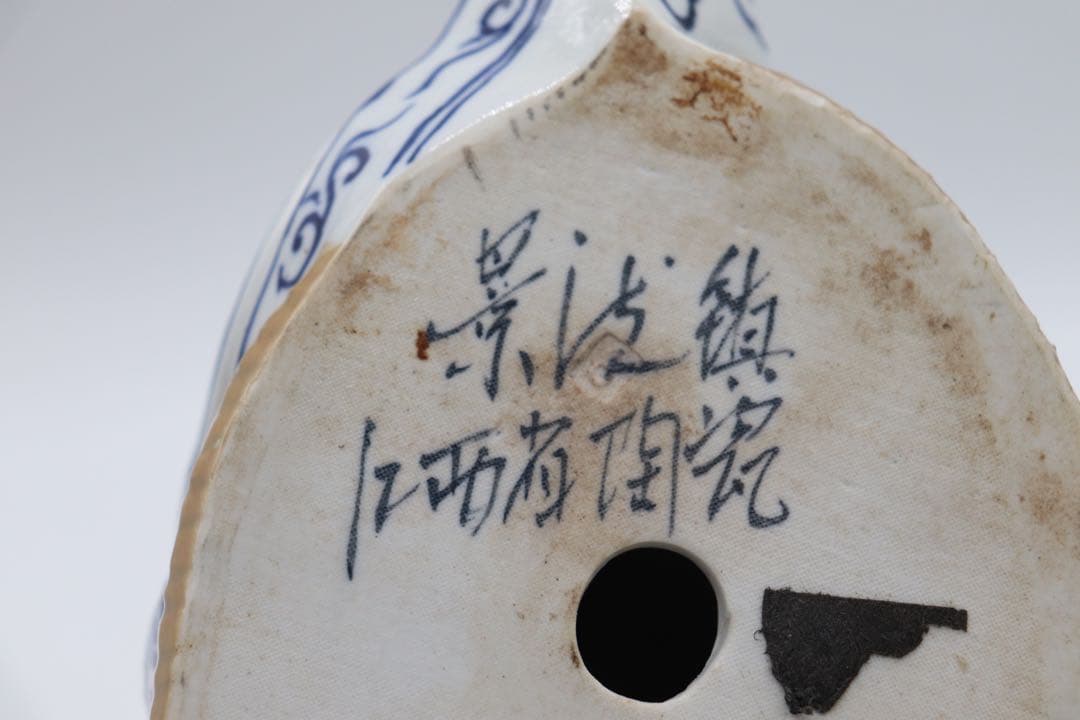 景德鎮
江西省陶瓷